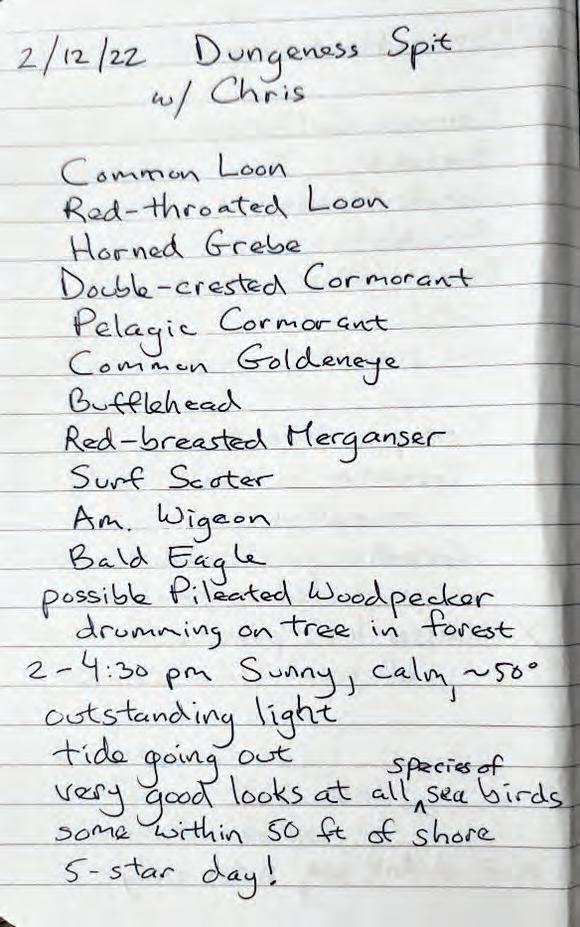 2/12/22 Dungeness Spit
w/ Chris
Common Loon
Red-throated Loon
Horned Grebe
Double-crested Cormorant
Pelagic Cormorant
Common Goldeneye
Bufflehead
Red-breasted Merganser
Surf Scoter
Am. Wigeon
Bald Eagle
possible Pileated Woodpecker
drumming on tree in forest
2-4:30 pm Sunny, calm, ~50°
outstanding light
tide going out
very good looks at all species of sea birds
some within 50 ft of shore
5-star day!